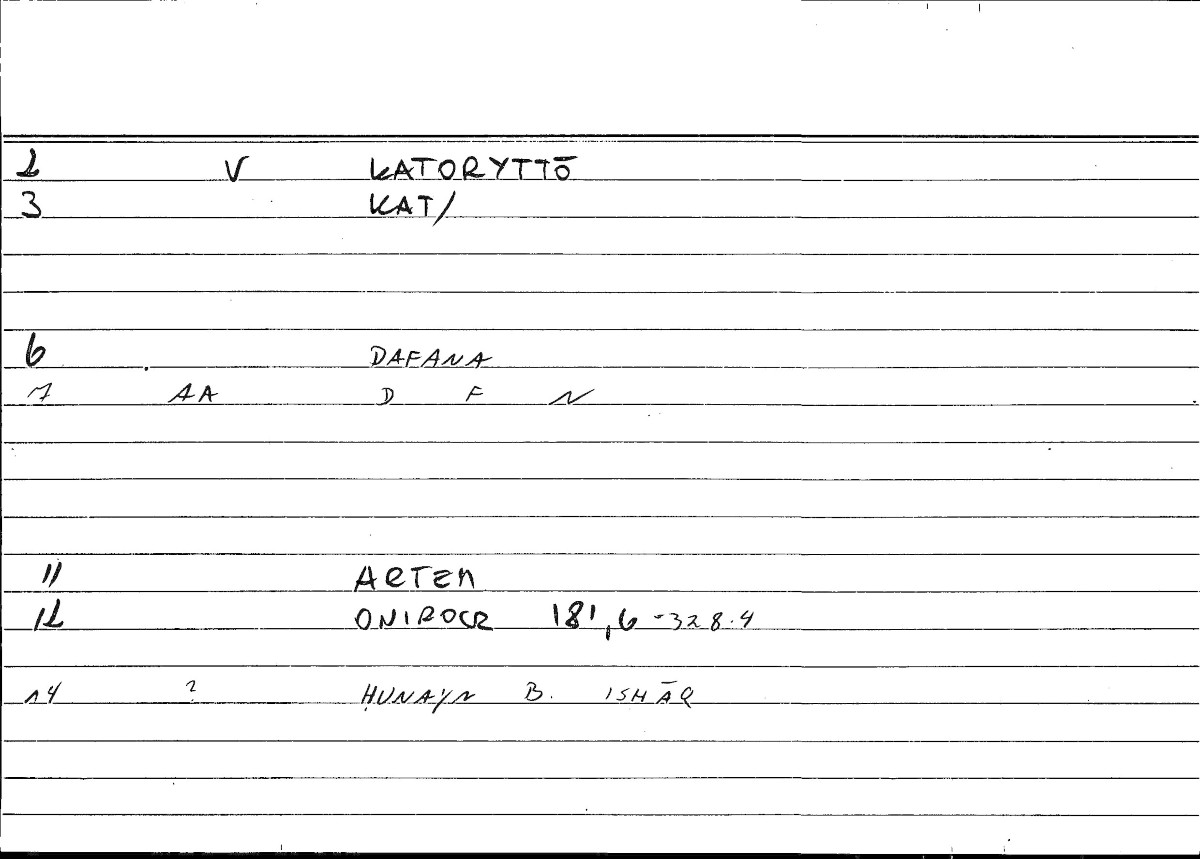 2 V KATORYTTŌ
3 KAT/
6 DAFANA
7 AA D F N
11 ARTEM
12 ONIROCR 181,6 - 328.4
14 ? ḤUNAYN B. ISHĀQ